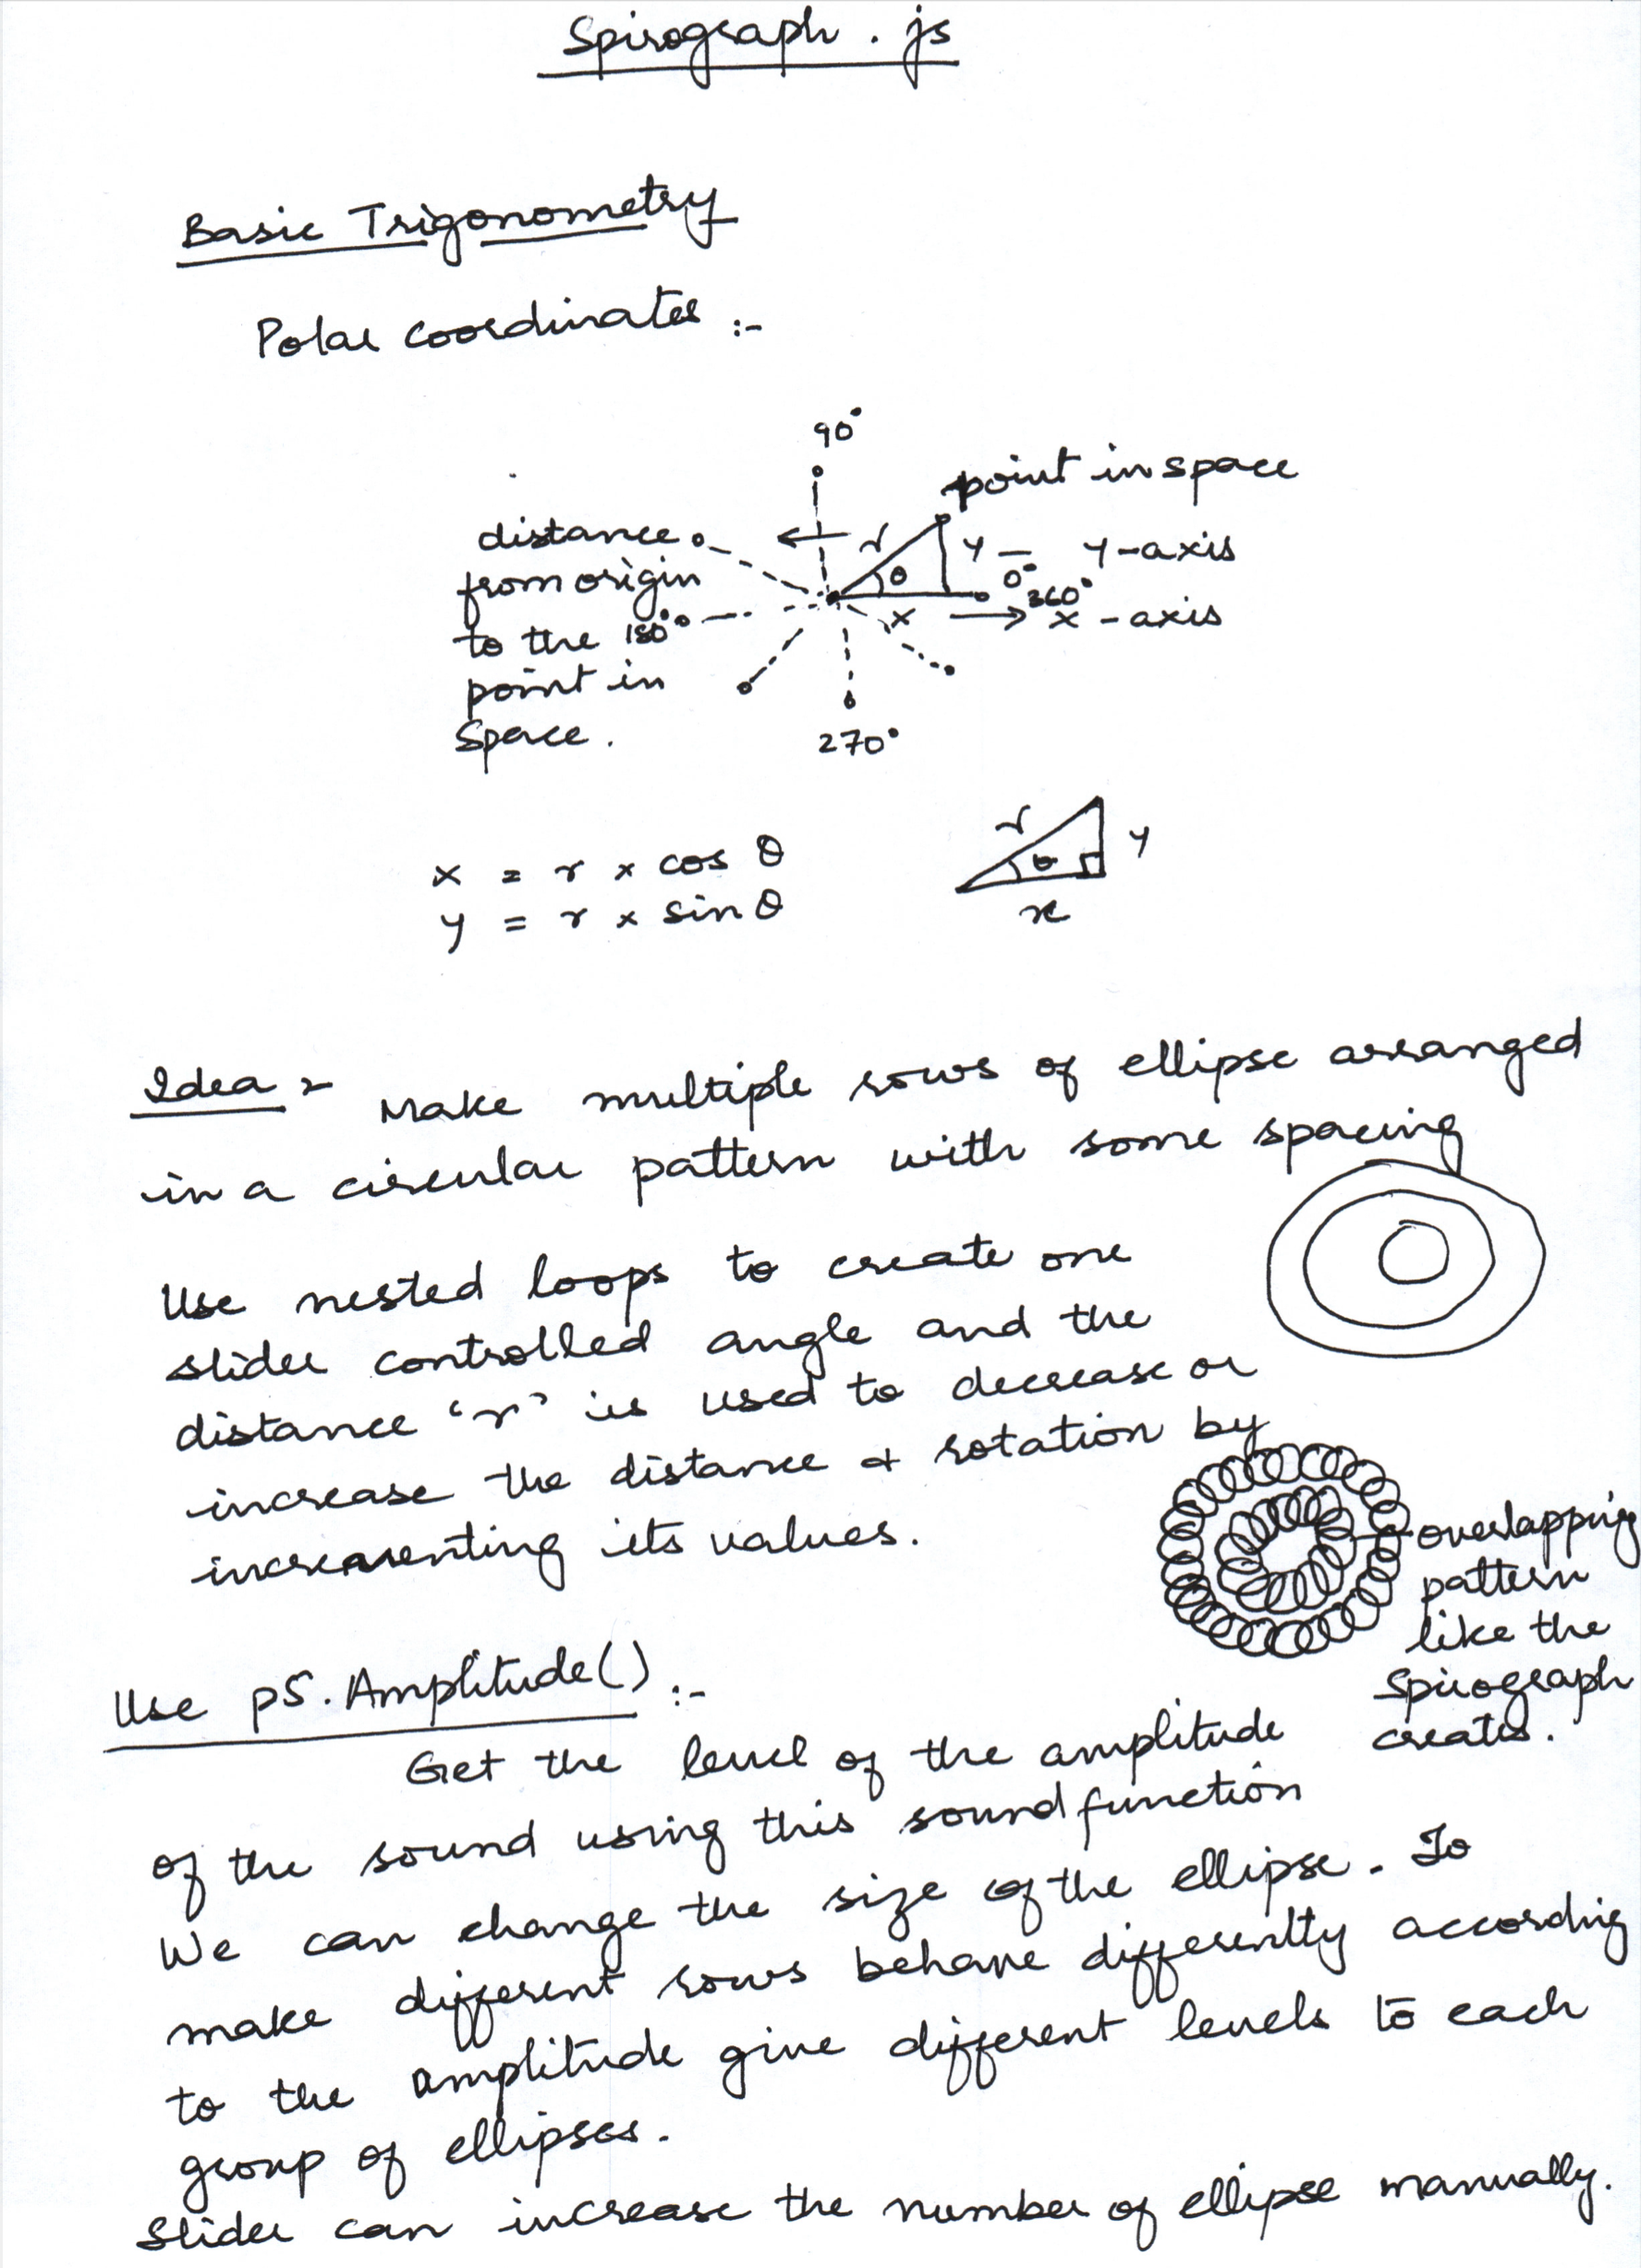 Spirograph . js
Basic Trigonometry
Polar Coordinates :-
90°
point in space
distance
from origin
to the
point in
Space .
r
θ
y — y-axis
0°
360°
x → x - axis
180°
270°
x = r x cos θ
y = r x sin θ
r
θ
y
x
Idea :- Make multiple rows of ellipse arranged
in a circular pattern with some spacing
Use nested loops to create one
slider controlled angle and the
distance 'r' is used to decrease or
increase the distance & rotation by
incrementing its values.
overlapping
pattern
like the
Spirograph
creates.
Use p5.Amplitude() :-
Get the level of the amplitude
of the sound using this sound function
We can change the size of the ellipse. To
make different rows behave differently according
to the amplitude give different levels to each
group of ellipses.
Slider can increase the number of ellipse manually.